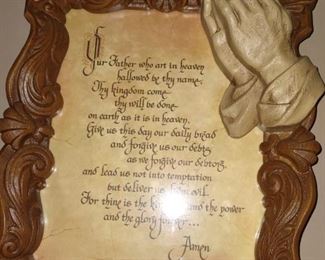 Our Father who art in heaven
hallowed be thy name.
Thy kingdom come
thy will be done
on earth as it is in heaven.
Give us this day our daily bread
and forgive us our debts,
as we forgive our debtors,
and lead us not into temptation
but deliver us from evil.
For thine is the and the power
and the glory forever...
Amen